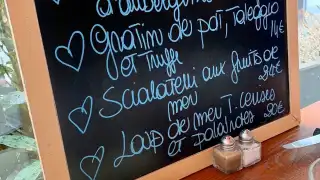 Gratin de pdt, taleggio
et truffe 14€
Scialatelli aux fruits de
mer 24€
Loup de mer T. cerises
et palourdes 20€